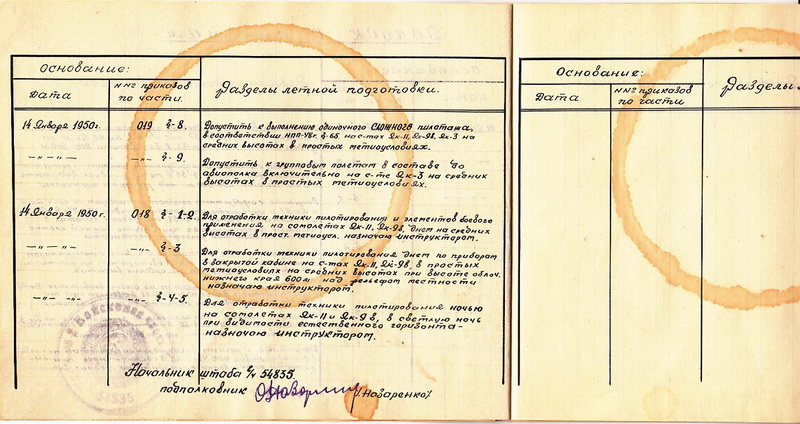 Основание:
Дата
№№ приказов
по части.
Разделы летной подготовки.
14 Января 1950г.
019 §-8.
Допустить к выполнению одиночного сложного пилотажа,
в соответствии НПП-48г. §-65 на с-тах Як-11, Як-9В, Як-3 на
средних высотах в простых метиоусловиях.
—〃— —〃—
—〃— §-9.
Допустить к групповым полетам в составе до
авиополка включительно на с-те Як-3 на средних
высотах в простых метиоусловиях.
14 Января 1950г.
018 §-1-2
Для отработки техники пилотирования и элементов боевого
применения на самолетах Як-11, Як-9В, днем на средних
высотах в прост. метиоусл. назначаю инструктором.
—〃— —〃—
—〃— §-3
Для отработки техники пилотирования днем по приборам
в закрытой кабине на с-тах Як-11, Як-9В, в простых
метиоусловиях на средних высотах при высоте облач.
нижнего края 600м над рельефом местности
назначаю инструктором.
—〃— —〃—
—〃— §-4-5.
Для отработки техники пилотирования ночью
на самолетах Як-11 и Як-9В, в светлую ночь
при видимости естественного горизонта-
назначаю инструктором.
Начальник штаба в/ч 54835.
подполковник
/Назаренко/
Войсковая
54835
Основание:
Дата
№№ приказов
по части
Разделы